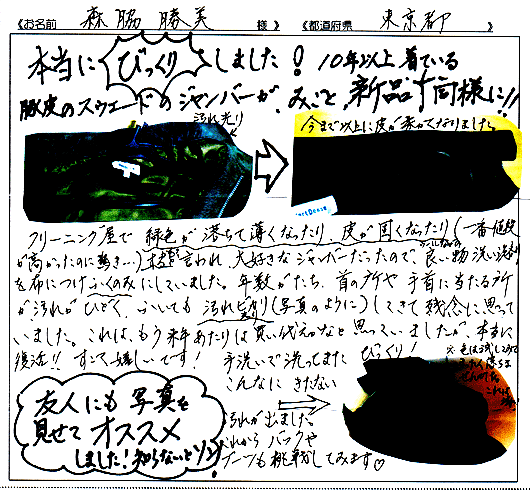 《お名前 森脇 勝美 様》 《都道府県 東京都 》
本当に びっくり しました！ 10年以上着ている
豚皮のスウェードのジャンバーが、みごと 新品同様に!!
汚れ光り
今まで以上に皮が柔かくなりました。
クリーニング屋で 緑色が落ちて薄くなったり、皮が固くなったり（一番値段
が高かったのに驚き…）言われ、大好きなジャンバーだったので、良い物洗い洗剤
を布につけふくのみにしていました。年数がたち、首の所や手首に当たる所
が汚れがひどく、ふいても 汚れピカリ（写真のように）してきて残念に思って
いました。これは、もう来年あたりは買い代えかなと思っていましたが、本当に
復活!! すごく嬉しいです！
手洗いで洗ってまた びっくり！
こんなに きたない
汚れが出ました。
これから バックや
ブーツも挑戦してみます♡
友人にも 写真を
見せて オススメ
しました！知らないとソン！